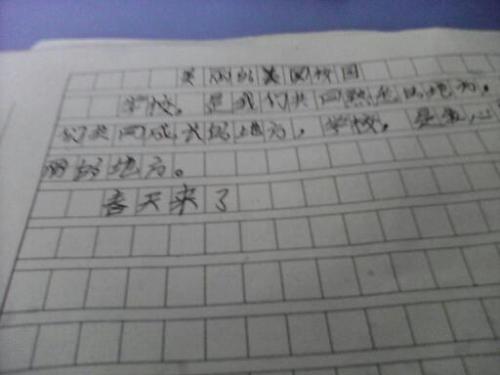 美丽的美园校园
学校，是我们共同熟悉的地方，
们共同成长的地方，学校，是我心
丽的地方。
春天来了